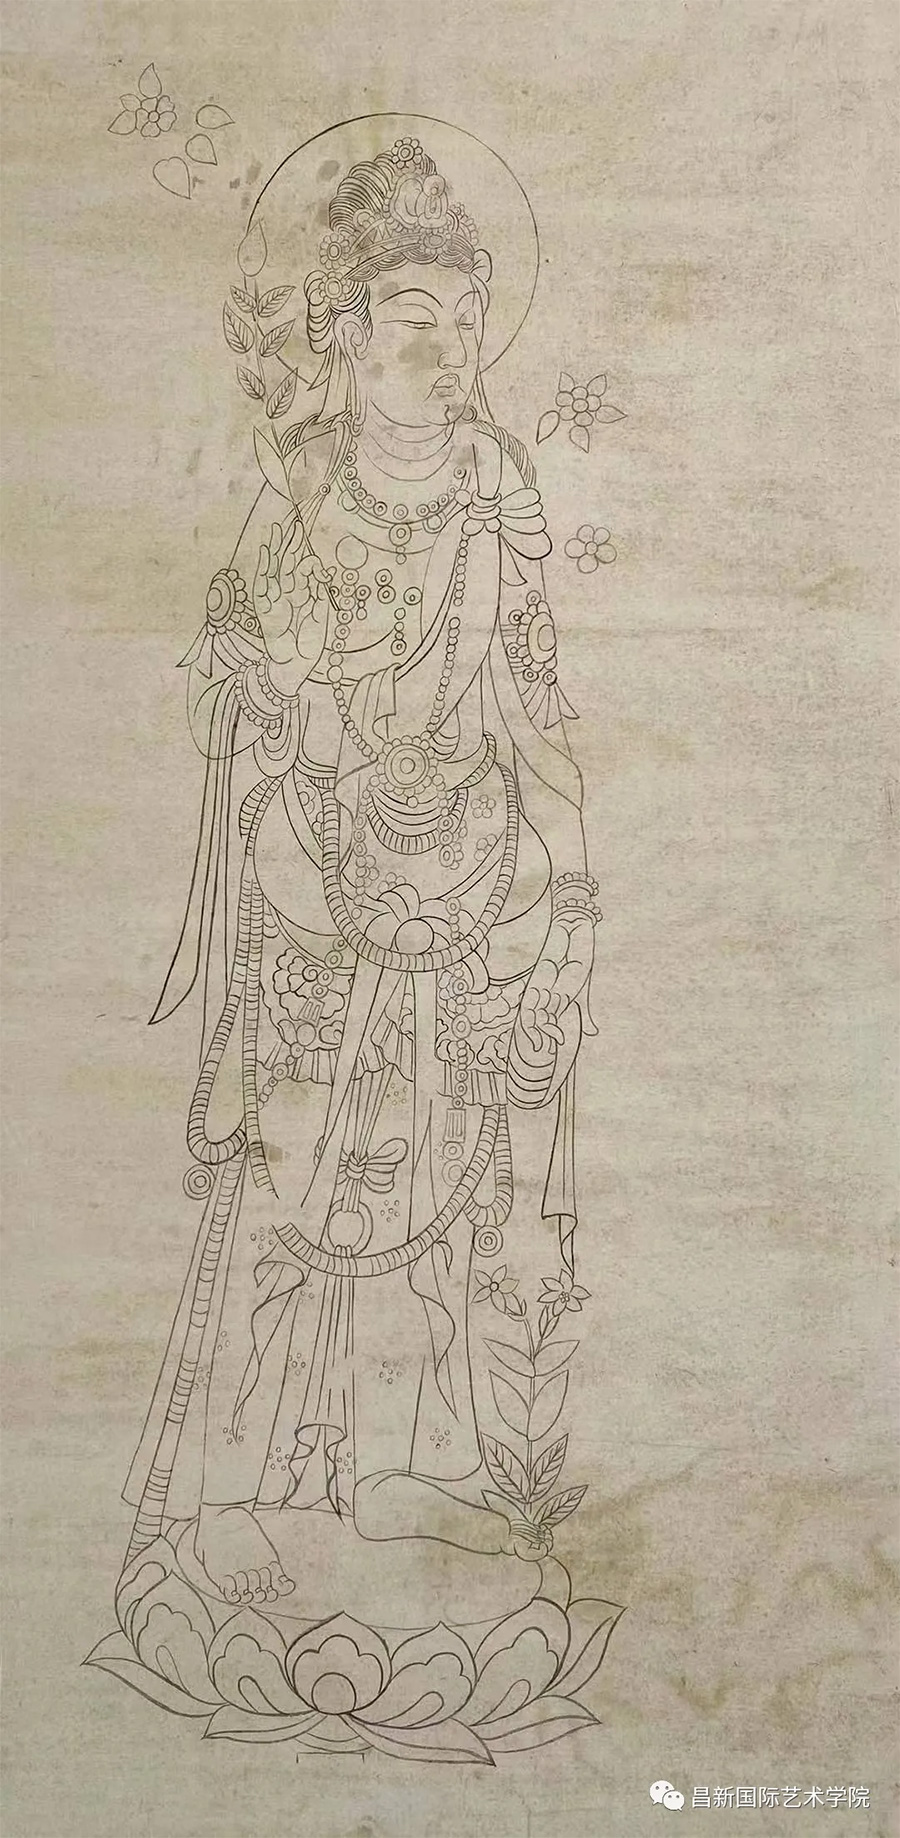 昌新国际艺术学院